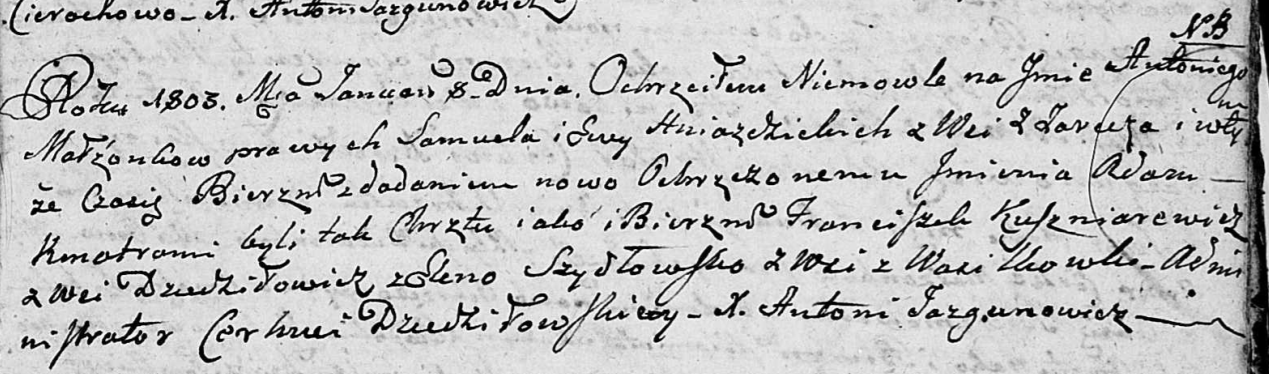 Cierochowo - X. Antoni Jazgunowicz
NB
Roku 1803. Mca Januar 8 Dnia. Ochrzciłem Niemowle na Jmie Antoniego
Małżonkow prawych Samuela i Ewy Hniazdzickich z Wsi z Zarucza i w tym
że Czasie Bierzm z dodaniem nowo Ochrzczonemu Jmienia Adam -
Kmotrami byli tak Chrztu iako i Bierzm Franciszek Kuszniarewicz
z Wsi Dziedziłowicz z Eleno Szydłowsko z Wsi z Wasilkowki - Admi
nistrator Cerkwi Dziedziłowskiey - X. Antoni Jazgunowicz